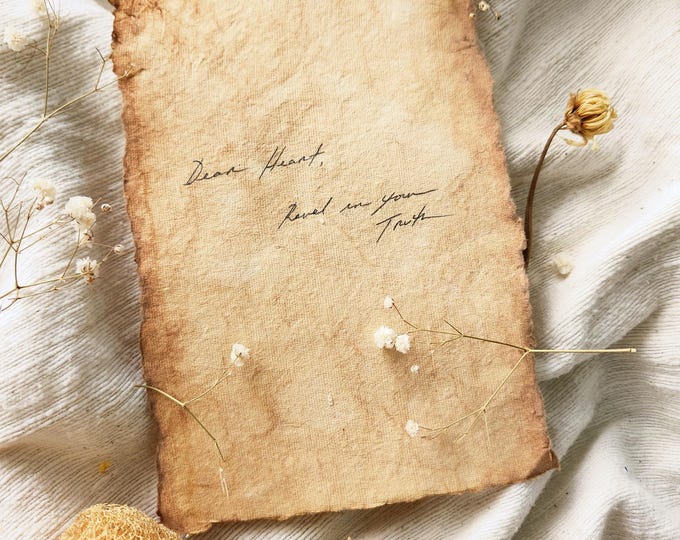 Dear Heart,
Revel in your
Truth